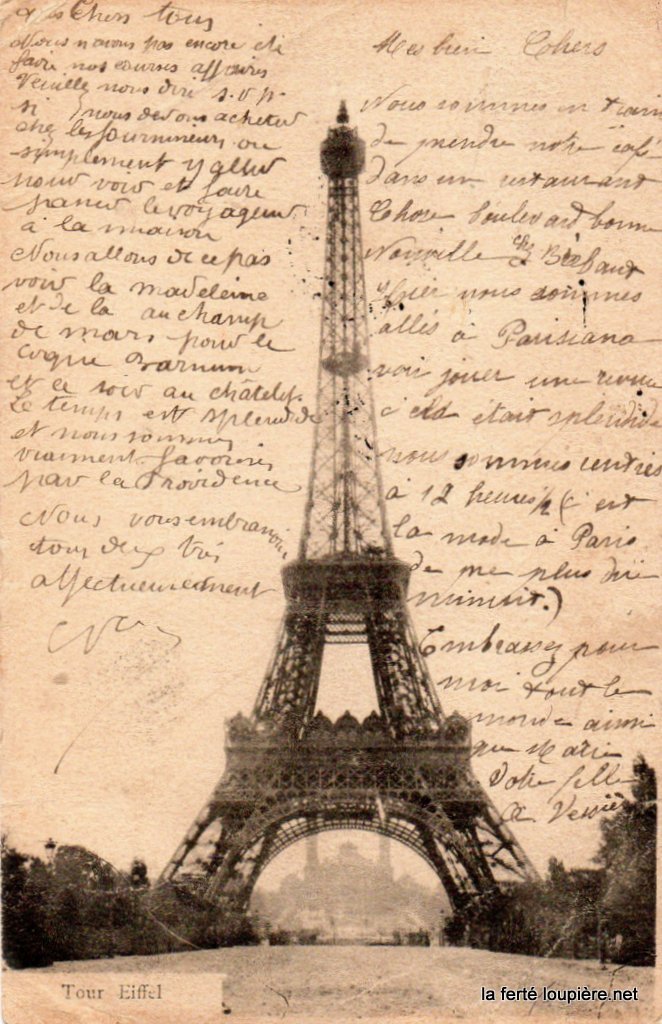 Chers tous
Nous n'avons pas encore été
faire nos courses affaires
Veuillez nous dire s.v.p.
si nous devons acheter
chez les fournisseurs ou
simplement y aller
pour voir et faire
passer le voyageur
à la maison
Nous allons de ce pas
voir la madeleine
et de la au champ
de mars pour le
Cirque Barnum
et ce soir au châtelet.
Le temps est splendide
et nous sommes
vraiment favorisés
par la Providence
Nous vous embrassons
tous deux très
affectueusement
Mes bien Chers
Nous sommes en train
de prendre notre café
dans un restaurant
boulevard bonne
Nouvelle chez
Hier nous sommes
allés à Parisiana
voir jouer une revue
c'était splendide
nous sommes rentrés
à 12 heures 1/2 (c'est
la mode à Paris
de ne plus dire
minuit.)
Embrassez pour
moi tout le
monde ainsi
que Marie
Votre fille
Tour Eiffel
la ferté loupière.net